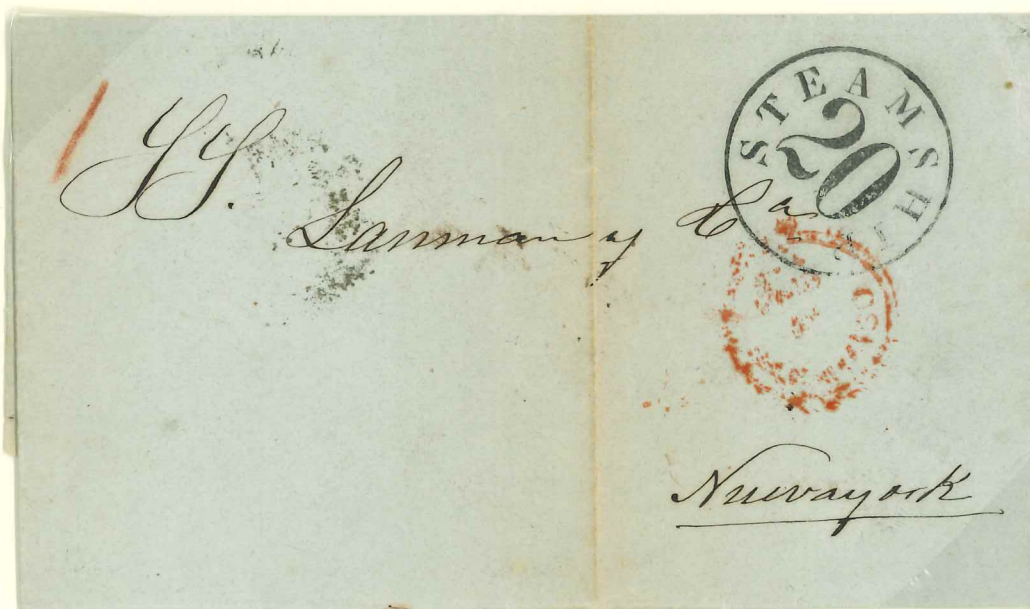 STEAMSHIP
20
SS.
Lanman y Ca
Nuevayork